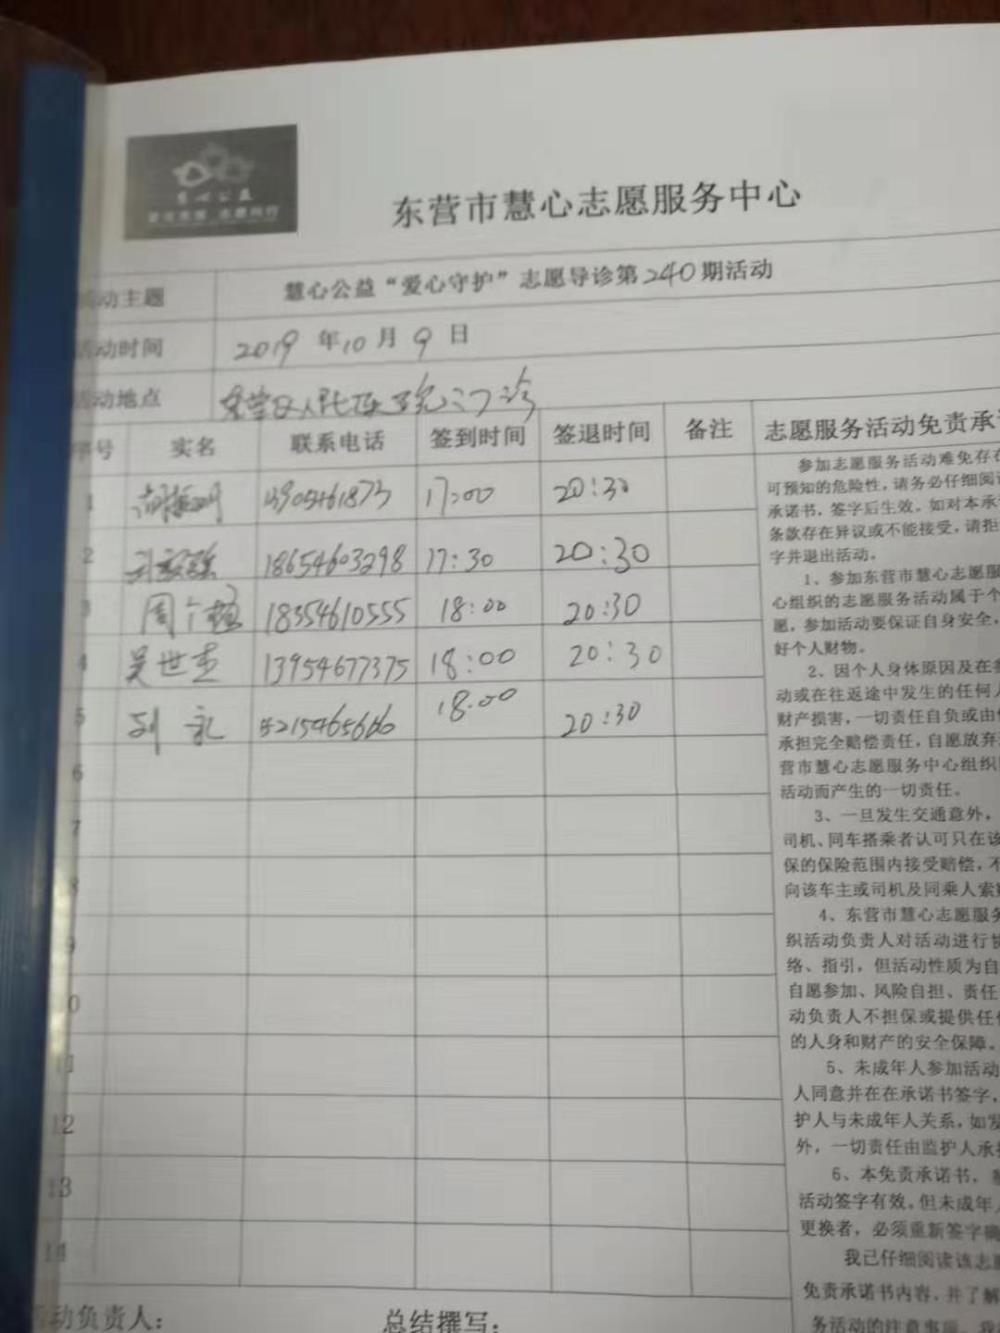 东营市慧心志愿服务中心
活动主题 慧心公益“爱心守护”志愿导诊第240期活动
活动时间 2019年10月9日
活动地点 东营区人民医院门诊
序号 实名 联系电话 签到时间 签退时间 备注 志愿服务活动免责承
1 13905461873 17:00 20:30
2 18654603298 17:30 20:30
3 周 18354610555 18:00 20:30
4 吴世 13954677375 18:00 20:30
5 刘 18:00 20:30
6
7
8
9
10
11
12
13
14
参加志愿服务活动难免存在
可预知的危险性,请务必仔细阅读
承诺书,签字后生效。如对本承
条款存在异议或不能接受,请拒
字并退出活动。
1、参加东营市慧心志愿服
心组织的志愿服务活动属于个
愿,参加活动要保证自身安全,
好个人财物。
2、因个人身体原因及在
动或在往返途中发生的任何人
财产损害,一切责任自负或由
承担完全赔偿责任,自愿放弃
营市慧心志愿服务中心组织
活动而产生的一切责任。
3、一旦发生交通意外,
司机、同车搭乘者认可只在该
保的保险范围内接受赔偿,不
向该车主或司机及同乘人索
4、东营市慧心志愿服务
织活动负责人对活动进行
络、指引,但活动性质为自
自愿参加、风险自担、责任
动负责人不担保或提供任
的人身和财产的安全保障。
5、未成年人参加活动
人同意并在在承诺书签字,
护人与未成年人关系,如发
外,一切责任由监护人承
6、本免责承诺书,
活动签字有效。但未成年
更换者,必须重新签字确
我已仔细阅读该志愿
免责承诺书内容,并了解
务活动的注意事项
活动负责人: 总结撰写: